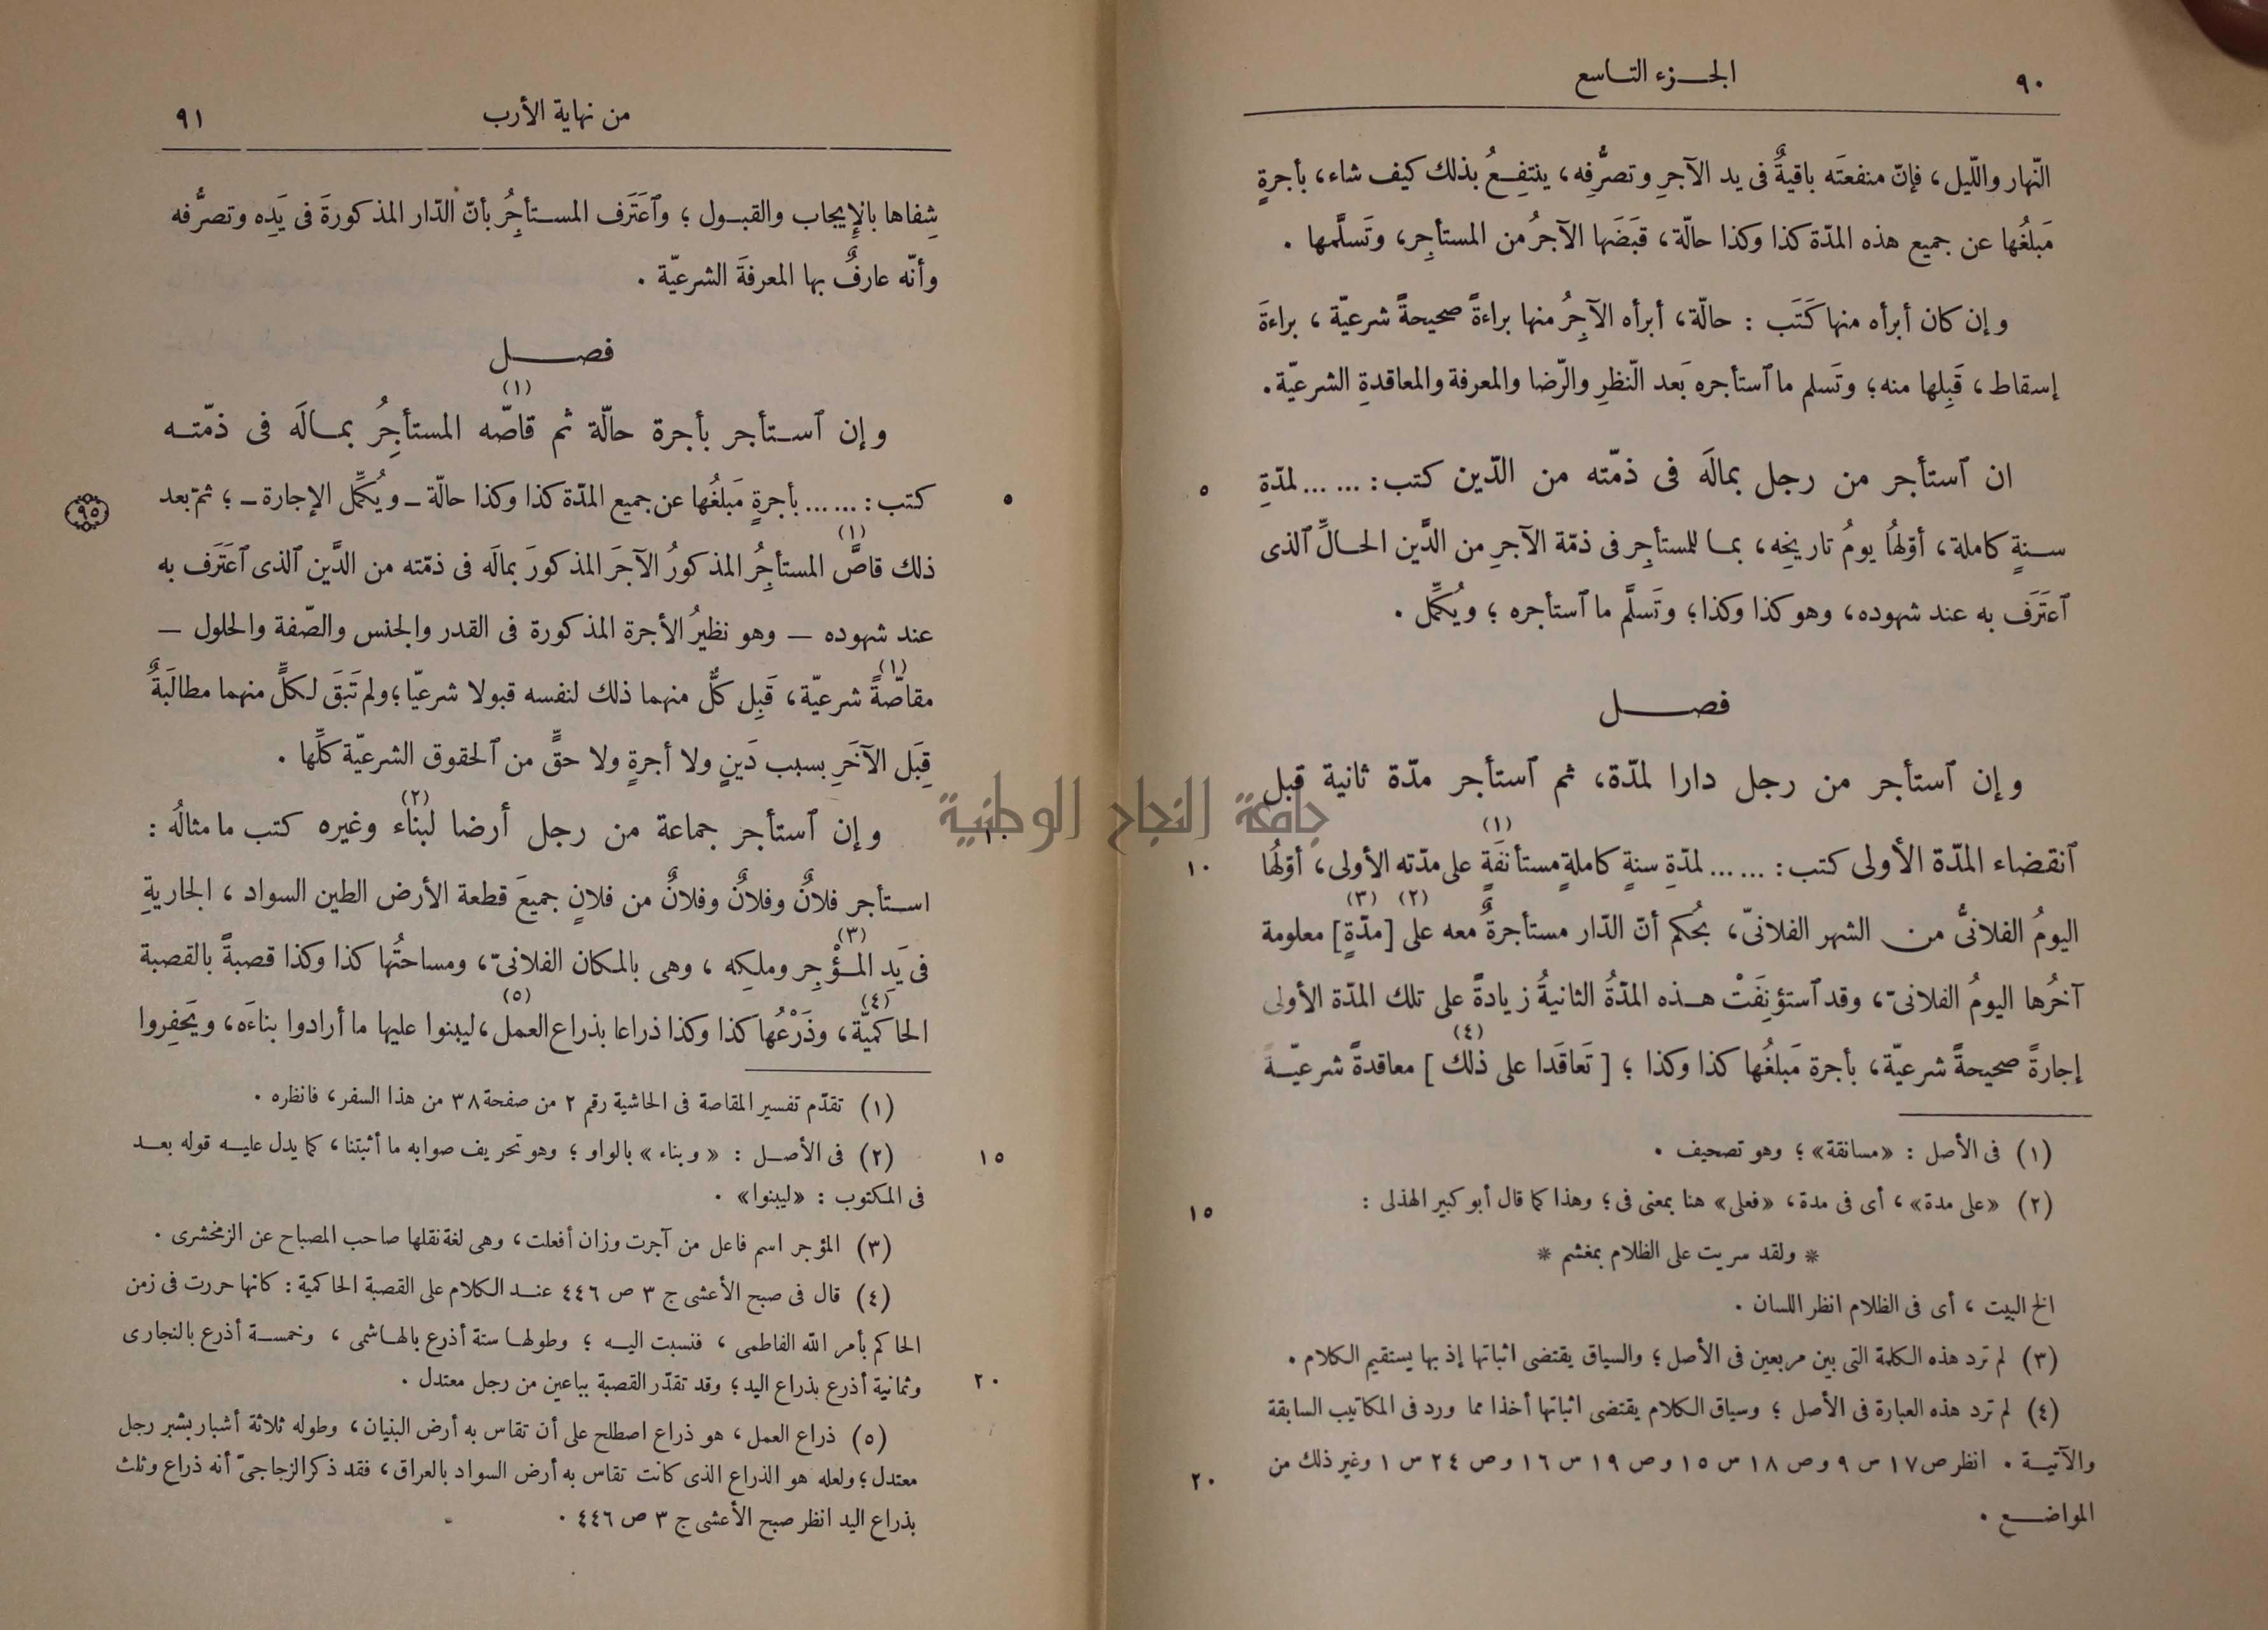 ٩٠
الجزء التاسع
النّهار والليل، فإنّ منفعتَه باقيةٌ فى يد الآجرِ وتصرُّفِه، ينتفِعُ بذلك كيف شاء، بأجرةٍ
مَبلغُها عن جميع هذه المدّة كذا وكذا حالّة، قَبَضَها الآجرُ من المستأجِر، وتَسلَّمها .
وإن كان أبرأه منها كَتَب : حالّة، أبرأه الآجِرُ منها براءةً صحيحةً شرعيّة، براءةَ
إسقاط، قَبِلها منه؛ وتَسلم ما ٱستأجره بَعد النّظرِ والرّضا والمعرفة والمعاقدةِ الشرعيّة.
ان ٱستأجر من رجل بمالَه فى ذمّته من الدّين كتب: ... ... لمدّةِ ٥
سنةٍ كاملة، أوّلهُا يومُ تاريخِه، بما للمستأجِر فى ذمّة الآجرِ من الدَّين الحالِّ ٱلذى
ٱعتَرَف به عند شهوده، وهو كذا وكذا؛ وتَسلَّم ما ٱستأجره؛ ويُكمِّل .
فصل
وإن ٱستأجر من رجل دارا لمدّة، ثم ٱستأجر مدّة ثانية قبل
ٱنقضاء المدّة الأولى كتب: ... ... لمدّةِ سنةٍ كاملةٍ مستأنفَةٍ (١) على مدّته الأولى، أوّلهُا ١٠
اليومُ الفلانىُّ من الشهر الفلانىّ، بُحكم أنّ الدّار مستأجرةٌ معه على (٢) [مدّةٍ] (٣) معلومة
آخرُها اليومُ الفلانىّ، وقد ٱستؤنِفَتْ هذه المدّةُ الثانيةُ زيادةً على تلك المدّة الأولى
إجارةً صحيحةً شرعيّة، بأجرة مَبلغُها كذا وكذا؛ [تَعاقَدا على ذلك (٤)] معاقدةً شرعيّـة
(١) فى الأصل : «مسانقة»؛ وهو تصحيف .
(٢) «على مدة»، أى فى مدة، «فعلى» هنا بمعنى فى؛ وهذا كما قال أبو كبير الهذلى : ١٥
* ولقد سريت على الظلام بمغشم *
الخ البيت، أى فى الظلام انظر اللسان .
(٣) لم ترد هذه الكلمة التى بين مربعين فى الأصل؛ والسياق يقتضى اثباتها إذ بها يستقيم الكلام .
(٤) لم ترد هذه العبارة فى الأصل؛ وسياق الكلام يقتضى اثباتها أخذا مما ورد فى المكاتيب السابقة
والآتيـة . انظر ص ١٧ س ٩ و ص ١٨ س ١٥ و ص ١٩ س ١٦ و ص ٢٤ س ١ وغير ذلك من ٢٠
المواضع .
من نهاية الأرب
٩١
شِفاها بالإيجاب والقبول؛ وٱعتَرَف المستأجِرُ بأنّ الدّار المذكورةَ فى يَدِه وتصرُّفه
وأنّه عارفٌ بها المعرفةَ الشرعيّة .
فصل
وإن ٱستأجر بأجرة حالّة ثم قاصّه (١) المستأجِرُ بمالَه فى ذمّته
كتب : ... ... بأجرةٍ مَبلغُها عن جميع المدّة كذا وكذا حالّة - ويُكمِّل الإجارة -؛ ثمّ بعد ٥
٩٥
ذلك قاصَّ (١) المستأجِرُ المذكورُ الآجَرَ المذكورَ بمالَه فى ذمّته من الدَّين ٱلذى ٱعتَرَف به
عند شهوده - وهو نظيرُ الأجرة المذكورة فى القدر والجنس والصّفة والحلول -
مقاصّةً (١) شرعيّة، قَبِل كلٌّ منهما ذلك لنفسه قبولا شرعيّا؛ ولم تَبقَ لكلٍّ منهما مطالَبَةٌ
قِبَل الآخَرِ بسبب دَينٍ ولا أجرةٍ ولا حقٍّ من ٱلحقوق الشرعيّة كلِّها .
وإن ٱستأجر جماعة من رجل أرضا لبناء (٢) وغيره كتب ما مثالُه : ١٠
استأجر فلانٌ وفلانٌ وفلانٌ من فلانٍ جميعَ قطعة الأرض الطين السواد، الجاريةِ
فى يَدِ المؤْجِر (٣) وملكِه، وهى بالمكان الفلانىّ، ومساحتُها كذا وكذا قصبةً بالقصبة
الحاكميّة (٤)، وذَرْعُها كذا وكذا ذراعا بذراع العمل (٥)، ليبنوا عليها ما أرادوا بناءَه، ويَحفِروا
(١) تقدّم تفسير المقاصة فى الحاشية رقم ٢ من صفحة ٣٨ من هذا السفر، فانظره .
(٢) فى الأصل : «وبناء» بالواو؛ وهو تحريف صوابه ما أثبتنا، كما يدل عليه قوله بعد ١٥
فى المكتوب : «ليبنوا» .
(٣) المؤجر اسم فاعل من آجرت وزان أفعلت، وهى لغة نقلها صاحب المصباح عن الزمخشرى .
(٤) قال فى صبح الأعشى ج ٣ ص ٤٤٦ عند الكلام على القصبة الحاكمية : كانها حررت فى زمن
الحاكم بأمر الله الفاطمى، فنسبت اليه؛ وطولها ستة أذرع بالهاشمى، وخمسة أذرع بالنجارى
وثمانية أذرع بذراع اليد؛ وقد تقدّر القصبة بباعين من رجل معتدل . ٢٠
(٥) ذراع العمل، هو ذراع اصطلح على أن تقاس به أرض البنيان، وطوله ثلاثة أشبار بشبر رجل
معتدل؛ ولعله هو الذراع الذى كانت تقاس به أرض السواد بالعراق، فقد ذكر الزجاجىّ أنه ذراع وثلث
بذراع اليد انظر صبح الأعشى ج ٣ ص ٤٤٦ .
جامعة النجاح الوطنية